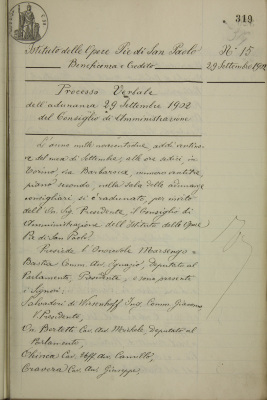 319
Istituto delle Opere Pie di San Paolo
Beneficenza e Credito
N. 15
29 Settembre 1902
Processo Verbale
dell'adunanza 29 Settembre 1902
del Consiglio di Amministrazione
L'anno mille novecentodue, addì ventinove
del mese di Settembre, alle ore dieci, in
Torino, via Barbaroux, numero
piano secondo, nella Sala delle adunanze
consigliari, si è radunato, per invito
dell'Ill. Sig. Presidente, il Consiglio di
Amministrazione dell'Istituto delle Opere
Pie di San Paolo.
Presiede l'Onorevole Marsengo
Bastia Comm. Avv. Ignazio, Deputato al
Parlamento, Presidente, e sono presenti
i Signori:
Salvadori di Wiesenhoff Ing. Comm. Giacomo
V. Presidente,
Cav. Avv. Michele, Deputato al
Parlamento,
Chiesa Cav. Avv. Camillo,
Cravera Cav. Avv. Giuseppe,